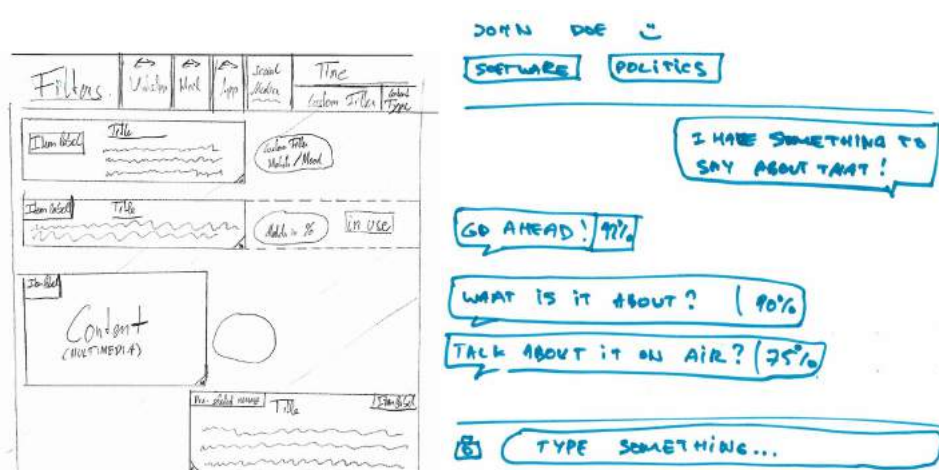 Filters
Mail
App
Social
Media
Time
Custom Filter
Content
Type
Item Label
Title
Custom Filter
Match / Mood
Item Label
Title
Match in %
in use
Item Label
Content
(MULTIMEDIA)
Title
Item Label
JOHN DOE
SOFTWARE
POLITICS
I HAVE SOMETHING TO
SAY ABOUT THAT!
GO AHEAD!
WHAT IS IT ABOUT? 90%
TALK ABOUT IT ON AIR? 75%
TYPE SOMETHING...